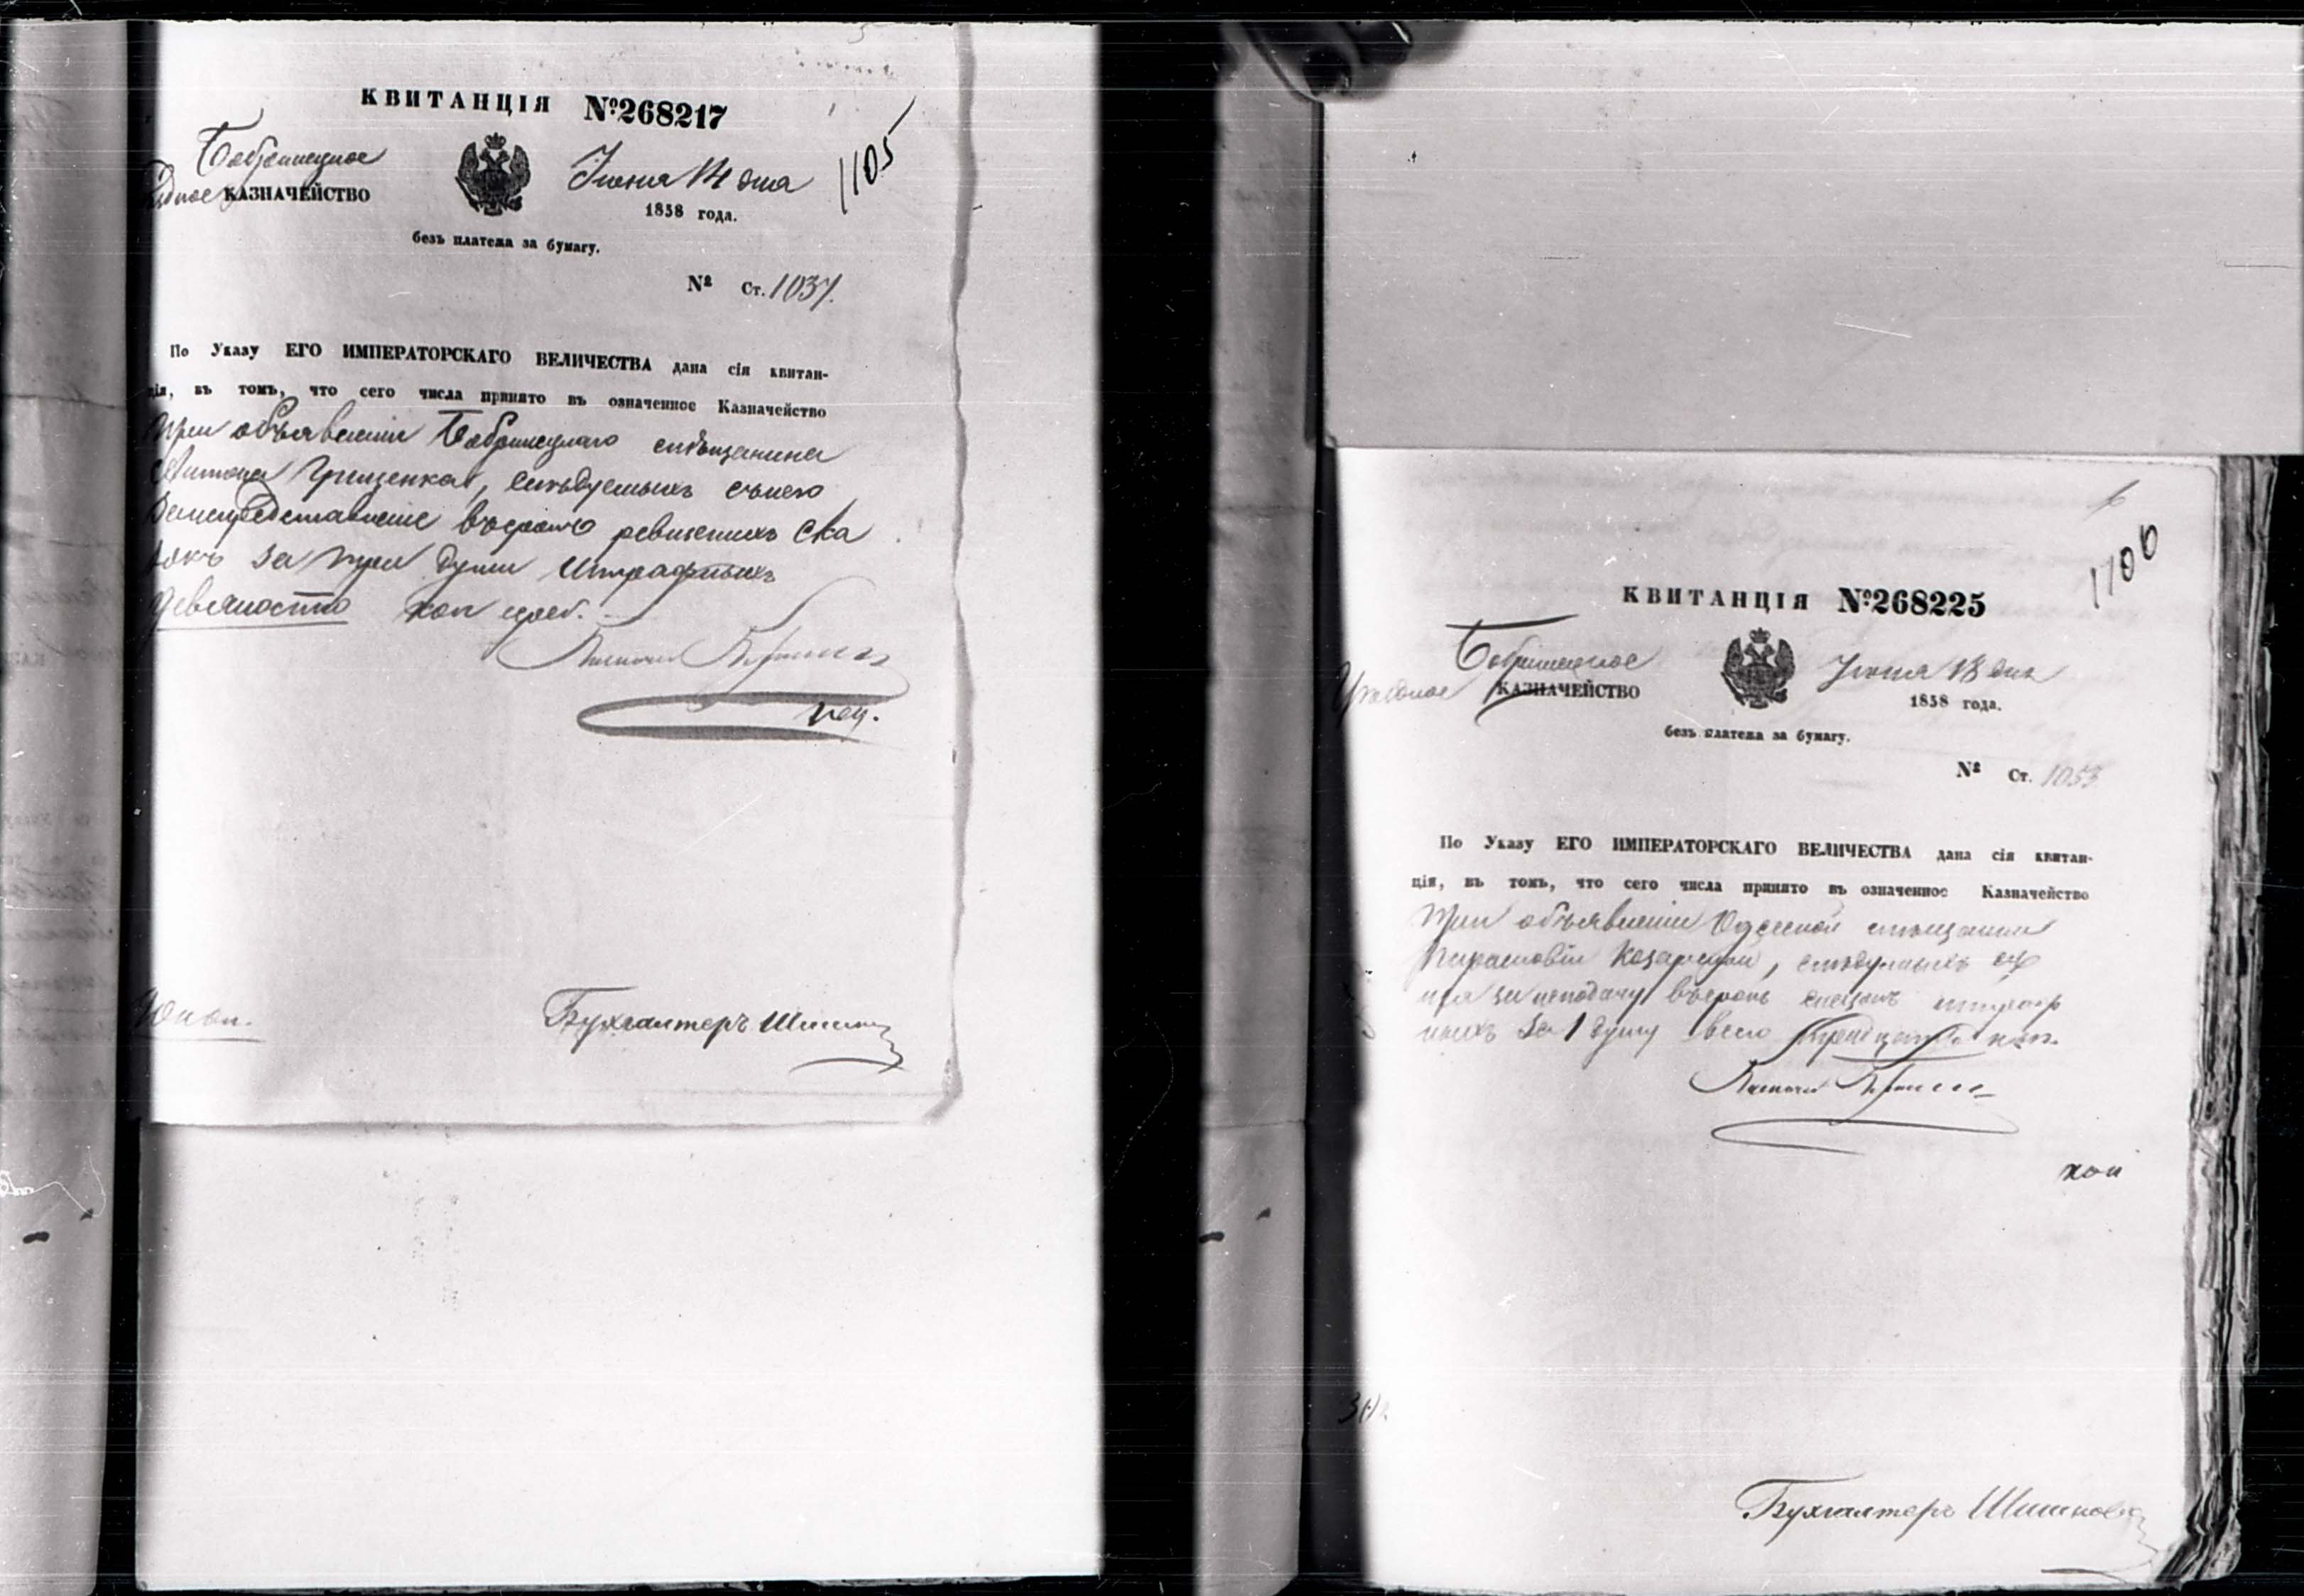 КВИТАНЦІЯ №268217
1105
Бобринецкое
Уѣздное КАЗНАЧЕЙСТВО
Іюня 14 дня
1858 года.
безъ платежа за бумагу.
№ Ст. 1037.
По Указу ЕГО ИМПЕРАТОРСКАГО ВЕЛИЧЕСТВА дана сія квитан-
ція, въ томъ, что сего числа принято въ означенное Казначейство
При объявленіи Бобринецкаго мѣщанина
Антона Грищенка, слѣдуемыхъ съ него
въ срокъ ревизскихъ ска
зокъ за три души штрафныхъ
девяносто коп сереб.
Казначей
Бухгалтеръ
КВИТАНЦІЯ №268225
1106
Бобринецкое
Уѣздное КАЗНАЧЕЙСТВО
Іюня 18 дня
1858 года.
безъ платежа за бумагу.
№ Ст. 1053
По Указу ЕГО ИМПЕРАТОРСКАГО ВЕЛИЧЕСТВА дана сія квитан-
ція, въ томъ, что сего числа принято въ означенное Казначейство
При объявленіи Одесской мѣщанки
слѣдуемыхъ
за неподачу въ срокъ штраф
ныхъ за 1 душу всего тридцать коп.
Казначей
коп
Бухгалтеръ